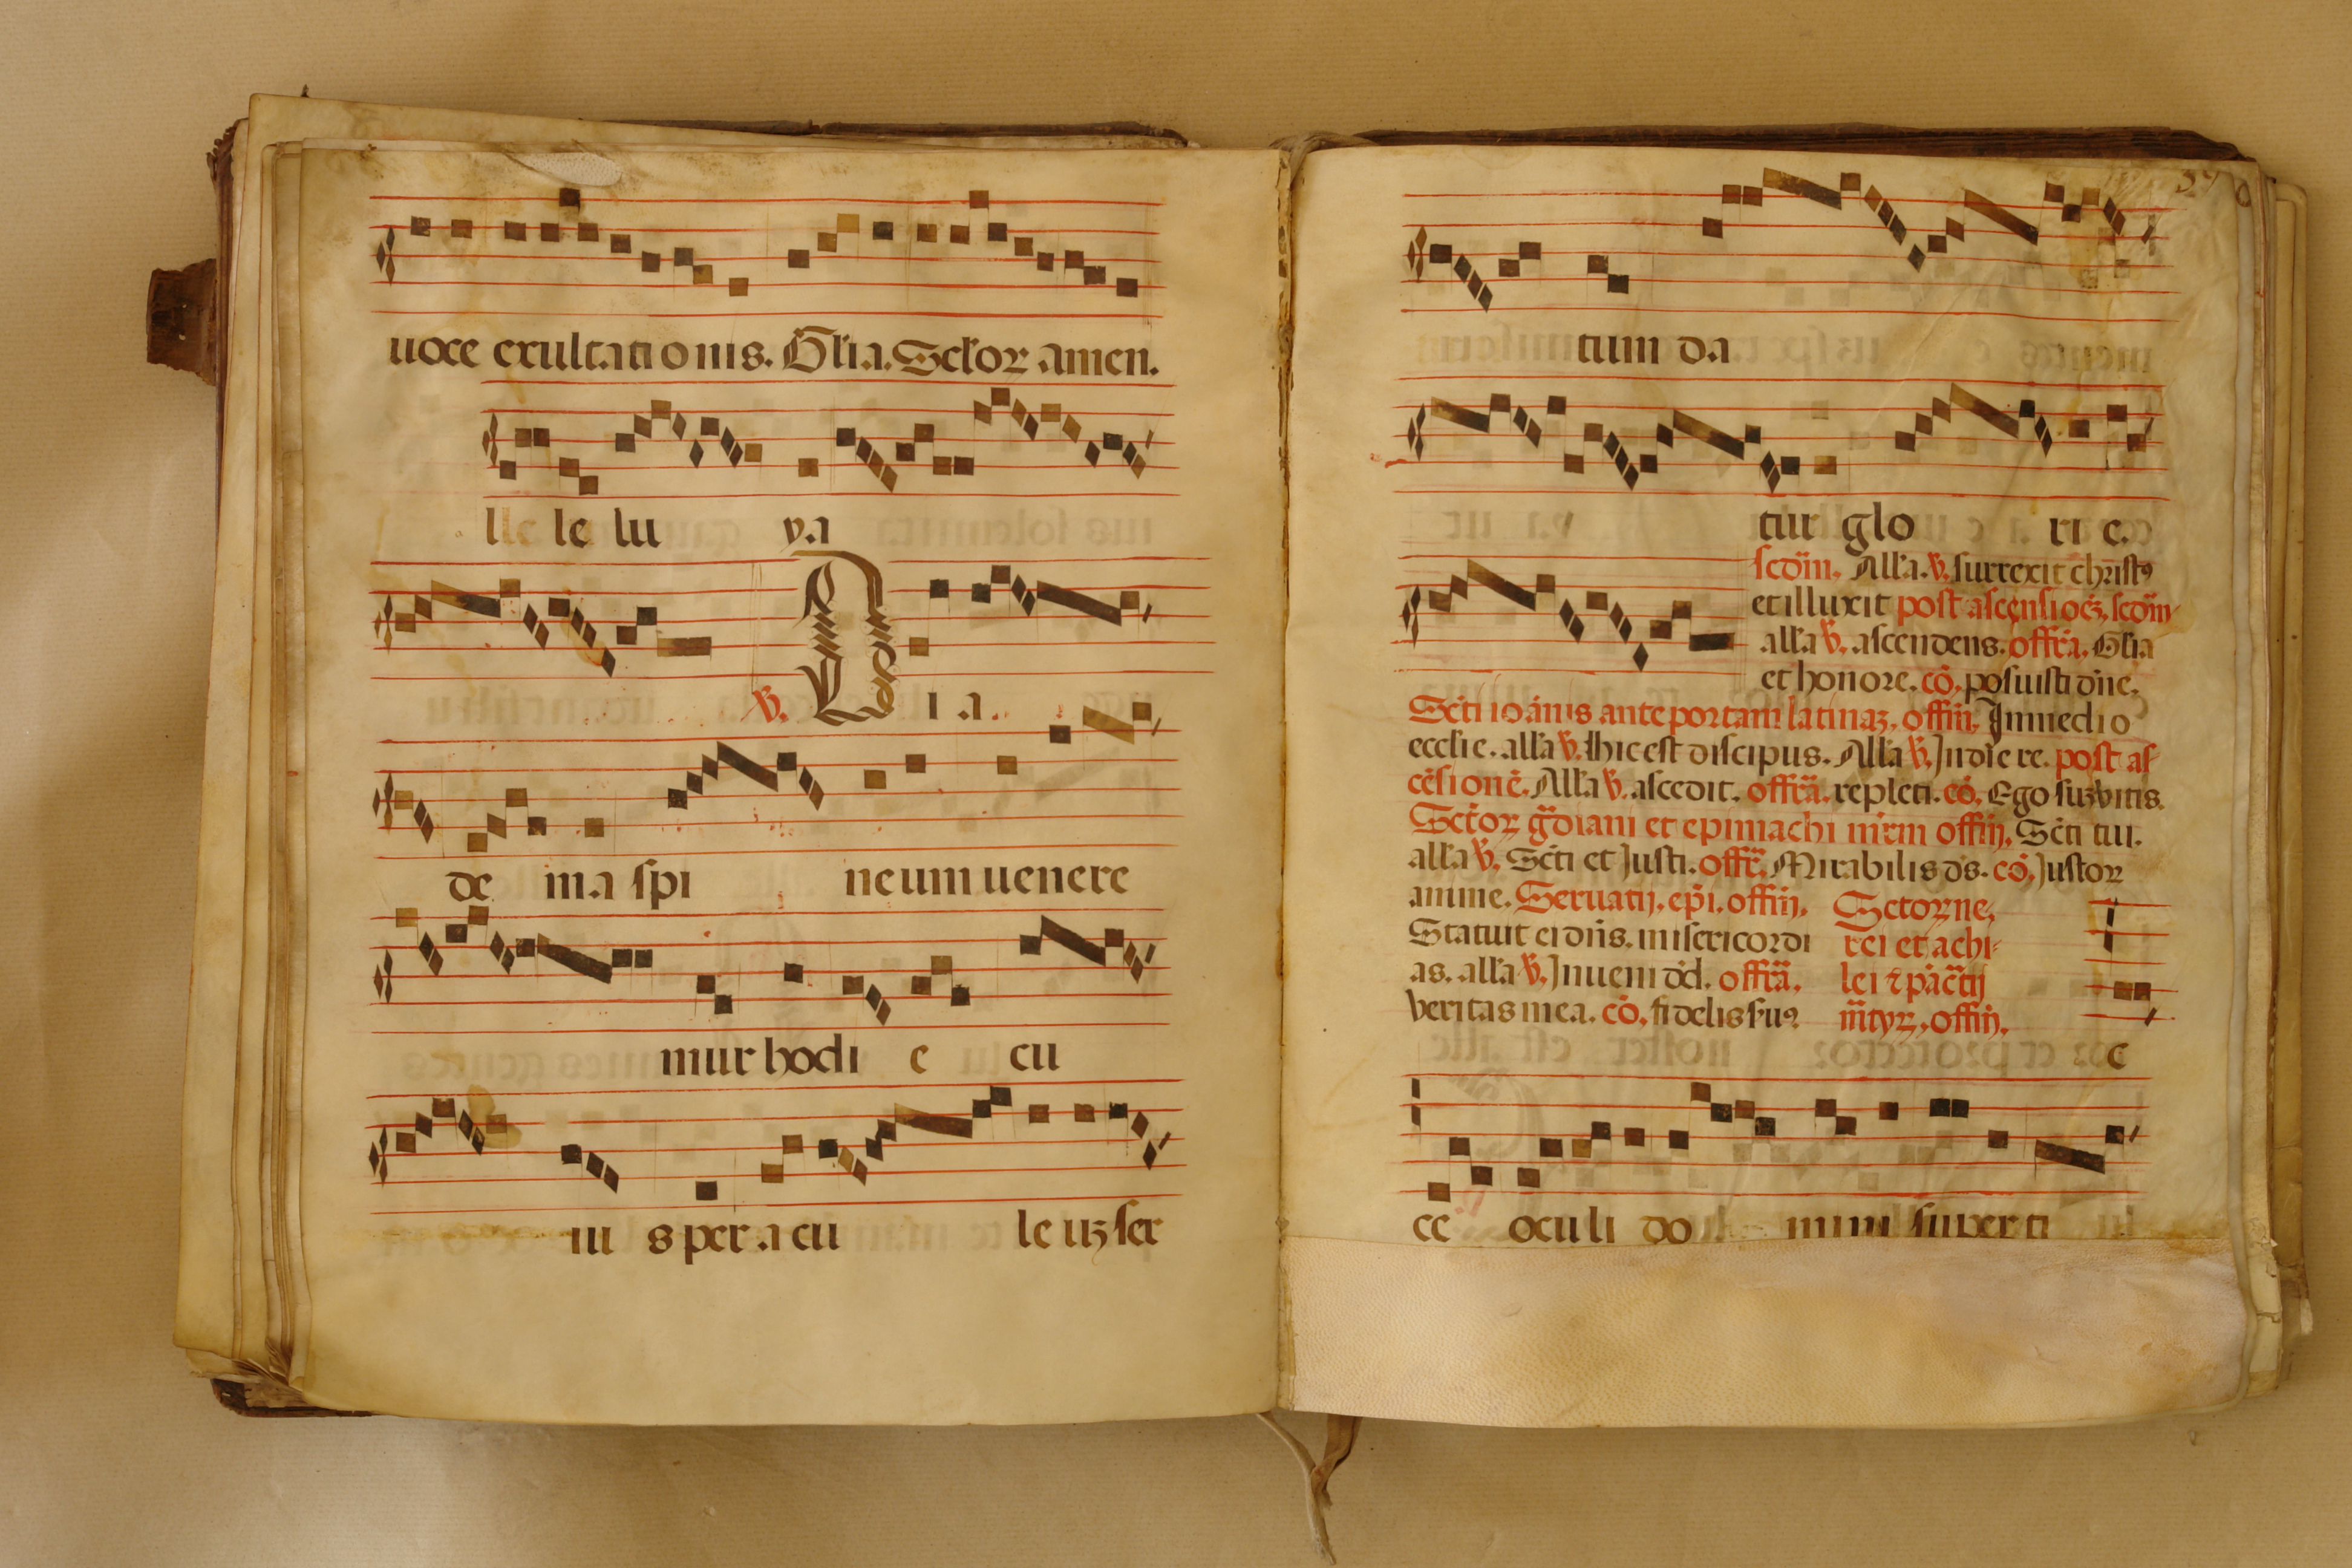 uoce exultati o nis. Glia. Sclor amen.
lle le lu ya
℣. Q i a
de m a spi ne um uenere
mur hodi e cu
iu s per a cu le uʒ ser
tum d a
tur glo ri e.
scōm. Alla. ℣. surrexit christꝰ
et illuxit post ascensioēʒ. scōm
alla ℣. ascendens. offrā. Glia
et honore. cō. posuisti dn̄e.
Scti ioānis ante portam latinaʒ. offm̄. In medio
ecclie. alla ℣. hic est discipus. Alla ℣. In die re. post as
cēsionē. Alla ℣. ascēdit. offrā. repleti. cō. Ego suʒ vitis.
Sctoꝝ gꝛdiani et epimachi mrm offm̄. Scti tui.
alla ℣. Scti et Justi. offr̄. Mirabilis ds. cō. Justoꝝ
anime. Seruatij. epi. offm̄.
Statuit ei dn̄s. misericordi
as. alla ℣. Inueni dd. offrā.
veritas mea. cō. fidelis suꝰ
Sctoꝝ ne,
rei et achi-
lei ⁊ pācᷓtij
m̄tyꝝ, offm̄.
e
ce oculi do mini super ti